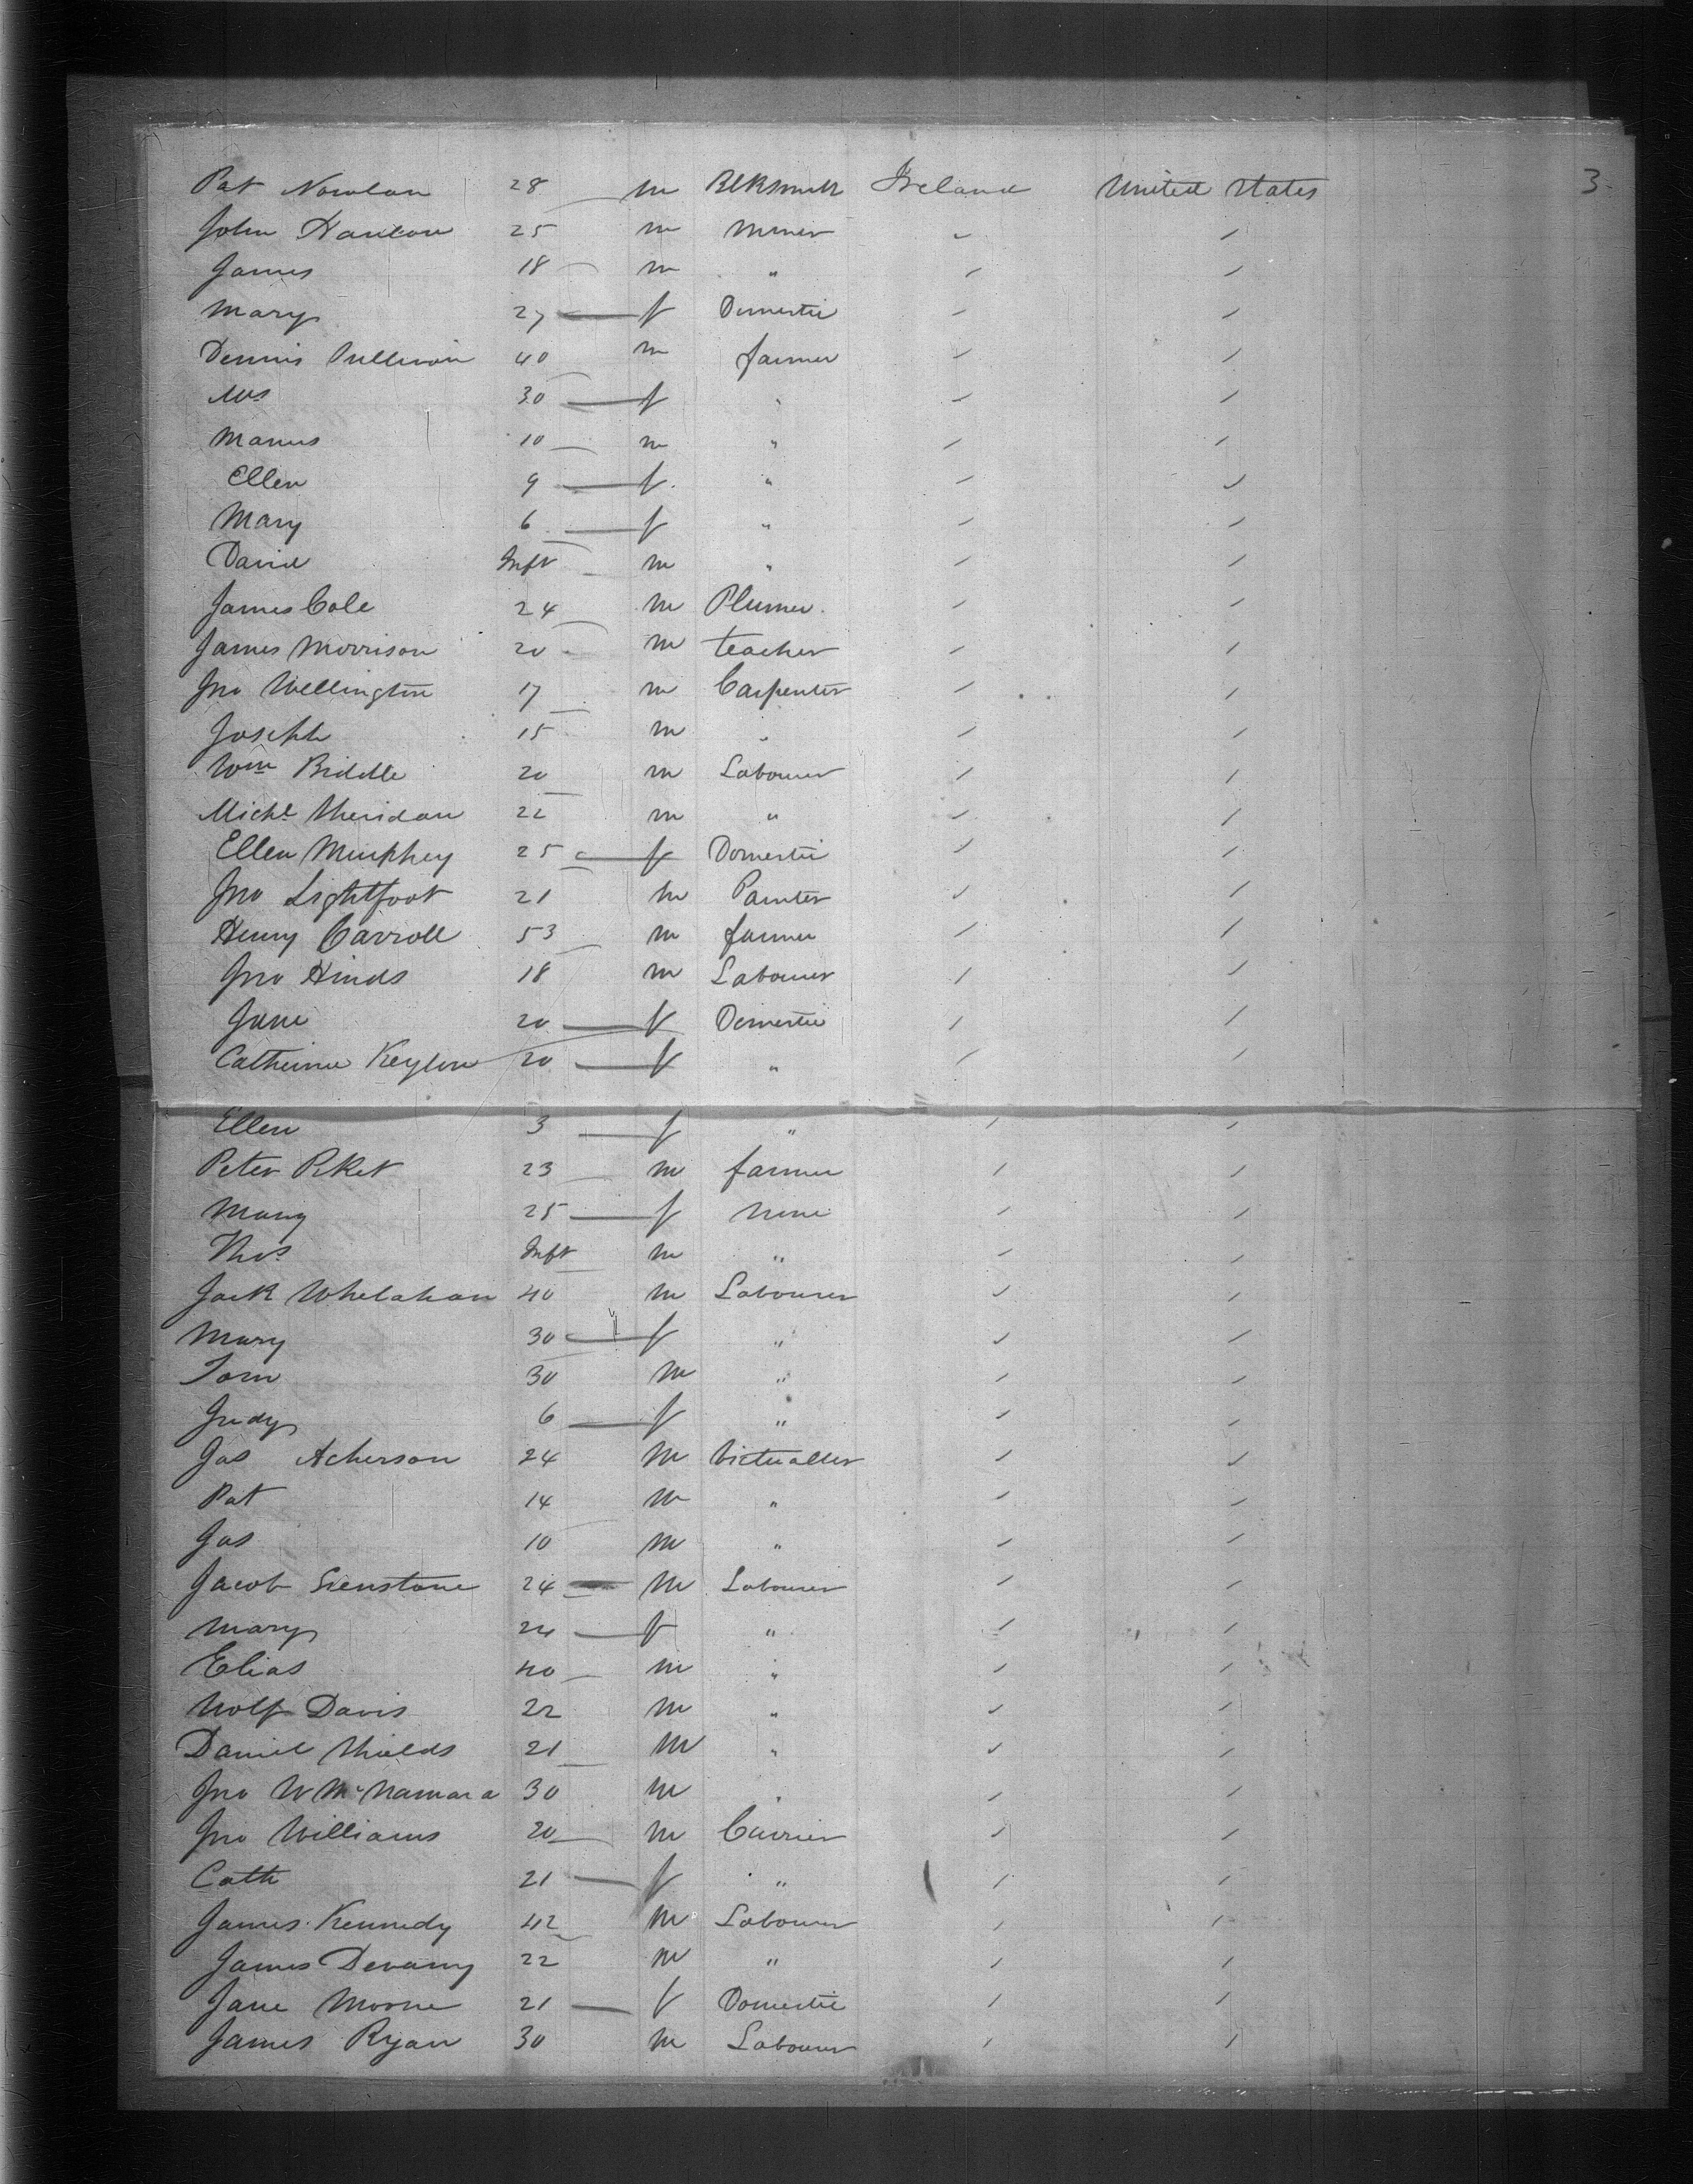 Pat Nowlan 28 m Blksmith Ireland United States 3
John Hanlon 25 m Miner
James 18 m "
Mary 27 f Domestic
Dennis Sullivan 40 m farmer
Mrs 30 f "
Manus 10 m "
Ellen 9 f "
Mary 6 f "
David Inft m "
James Cole 24 m Plumer
James Morrison 20 m teacher
Jno Wellington 17 m Carpenter
Joseph 15 m "
Wm Biddle 20 m Labourer
Michl Sheridan 22 m "
Ellen Murphey 25 f Domestic
Jno Lightfoot 21 m Painter
Henry Carroll 53 m farmer
Jno Hinds 18 m Labourer
Jane 20 f Domestic
Catherine 20 f "
Ellen 3 f "
Peter 23 m farmer
Mary 25 f None
Thos Inft m "
Jack Whelahan 40 m Labourer
Mary 30 f "
Tom 30 m "
Judy 6 f "
Jas Acherson 24 m Victualler
Pat 14 m "
Jas 10 m "
Jacob 24 m Labourer
Mary 24 f "
Elias 40 m "
Wolf Davis 22 m "
Daniel Shields 21 m "
Jno W McNamara 30 m "
Jno Williams 20 m Currier
Cath 21 f "
James Kennedy 42 m Labourer
James Devanny 22 m "
Jane Moore 21 f Domestic
James Ryan 30 m Labourer